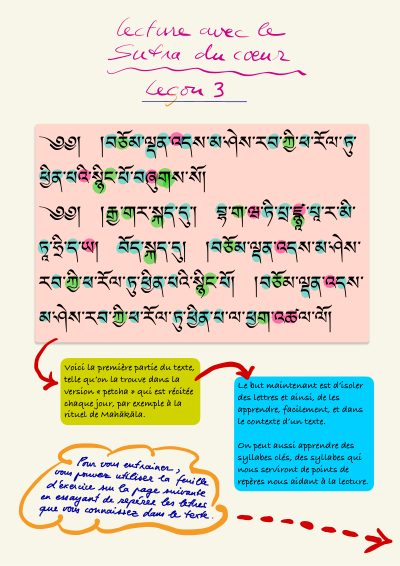 Lecture avec le
Sutra du cœur
Leçon 3
༄༅། །བཅོམ་ལྡན་འདས་མ་ཤེས་རབ་ཀྱི་ཕ་རོལ་ཏུ་
ཕྱིན་པའི་སྙིང་པོ་བཞུགས་སོ།
༄༅། །རྒྱ་གར་སྐད་དུ། བྷ་ག་ཝ་ཏི་པྲ་ཛྙཱ་པཱ་ར་མི་
ཏཱ་ཧྲྀ་ད་ཡ། བོད་སྐད་དུ། །བཅོམ་ལྡན་འདས་མ་ཤེས་
རབ་ཀྱི་ཕ་རོལ་ཏུ་ཕྱིན་པའི་སྙིང་པོ། །བཅོམ་ལྡན་འདས་
མ་ཤེས་རབ་ཀྱི་ཕ་རོལ་ཏུ་ཕྱིན་པ་ལ་ཕྱག་འཚལ་ལོ།
Voici la première partie du texte,
telle qu'on la trouve dans la
version « petcha » qui est récitée
chaque jour, par exemple à la
rituel de Mahākāla.
Le but maintenant est d'isoler
des lettres et ainsi, de les
apprendre, facilement, et dans
le contexte d'un texte.
On peut aussi apprendre des
syllabes clés, des syllabes qui
nous serviront de points de
repères nous aidant à la lecture.
Pour vous entrainer,
vous pouvez utiliser la feuille
d'exercice sur la page suivante
en essayant de repérer les lettres
que vous connaissez dans le texte.